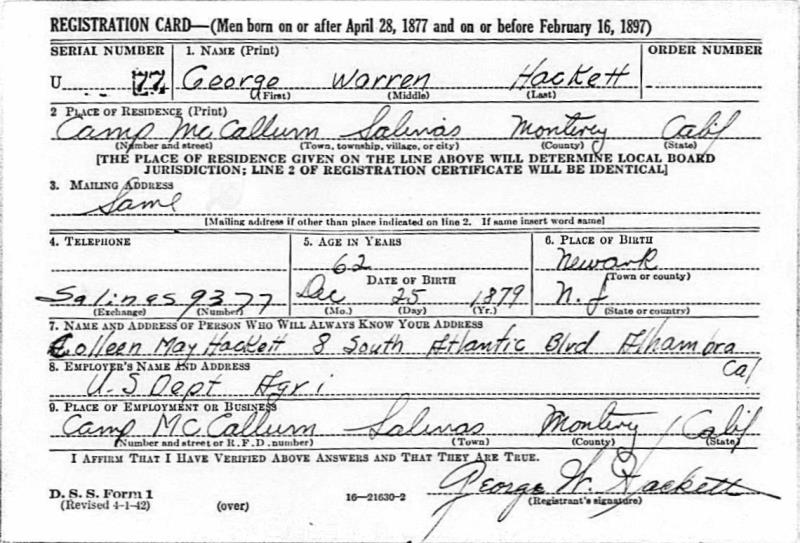 REGISTRATION CARD—(Men born on or after April 28, 1877 and on or before February 16, 1897)
SERIAL NUMBER 1. NAME (Print) ORDER NUMBER
U 77 George Warren Hackett
(First) (Middle) (Last)
2 PLACE OF RESIDENCE (Print)
Camp McCallum Salinas Monterey Calif
(Number and street) (Town, township, village, or city) (County) (State)
[THE PLACE OF RESIDENCE GIVEN ON THE LINE ABOVE WILL DETERMINE LOCAL BOARD
JURISDICTION; LINE 2 OF REGISTRATION CERTIFICATE WILL BE IDENTICAL]
3. MAILING ADDRESS
Same
[Mailing address if other than place indicated on line 2. If same insert word same]
4. TELEPHONE 5. AGE IN YEARS 6. PLACE OF BIRTH
62 Newark
DATE OF BIRTH (Town or county)
Salinas 9377 Dec 25 1879 N.J
(Exchange) (Number) (Mo.) (Day) (Yr.) (State or country)
7. NAME AND ADDRESS OF PERSON WHO WILL ALWAYS KNOW YOUR ADDRESS
Colleen May Hackett 8 South Atlantic Blvd Alhambra
Cal
8. EMPLOYER'S NAME AND ADDRESS
U.S Dept Agri
9. PLACE OF EMPLOYMENT OR BUSINESS
Camp McCallum Salinas Monterey Calif
(Number and street or R. F. D. number) (Town) (County) (State)
I AFFIRM THAT I HAVE VERIFIED ABOVE ANSWERS AND THAT THEY ARE TRUE.
George W. Hackett
D. S. S. Form 1
(Revised 4-1-42) (over) 16—21630-2 (Registrant's signature)